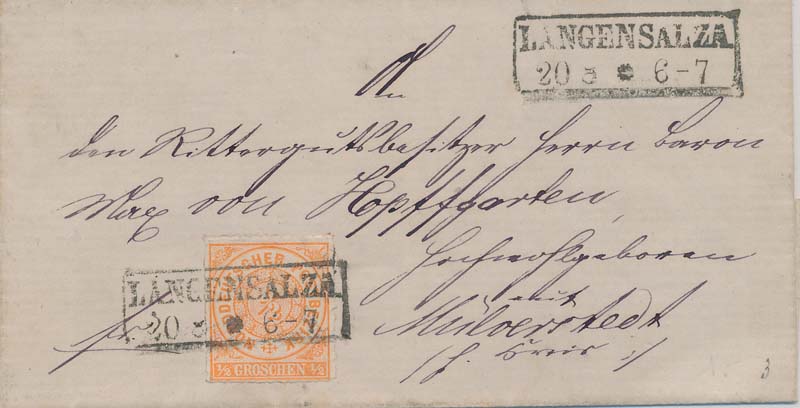 LANGENSALZA
20 5 * 6-7
An
den Rittergutsbesitzer Herrn Baron
Max von Hopffgarten,
Hochwohlgeboren
Mülverstedt
NORDDEUTSCHER POSTBEZIRK
LANGENSALZA
20 5 * 6-7
fr
(h. Kreis :/
1/2 GROSCHEN 1/2
3